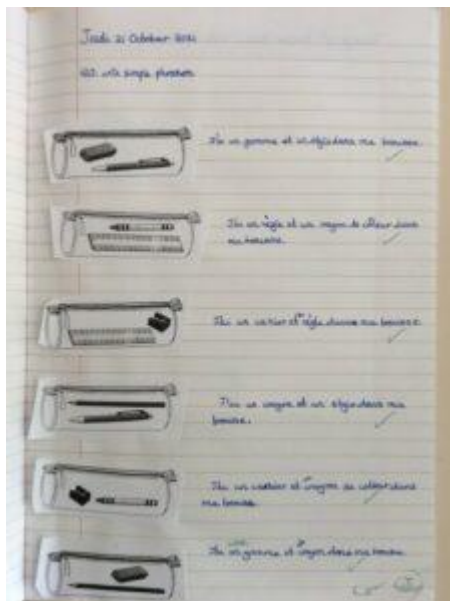 Jeudi 21 October 2021
write simple phrases
J'ai un gomme et un stylo dans ma trousse.
J'ai un règle et un crayon de couleur dans
ma trousse.
J'ai un et règle ma trousse.
J'ai un crayon et un stylo dans ma
trousse.
J'ai un et crayon de dans
ma trousse
J'ai gomme et crayon dans ma trousse